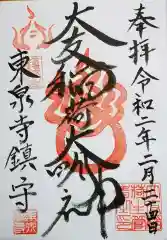 奉拝令和二年二月二十四日
大友稲荷大明神
東泉寺鎮守